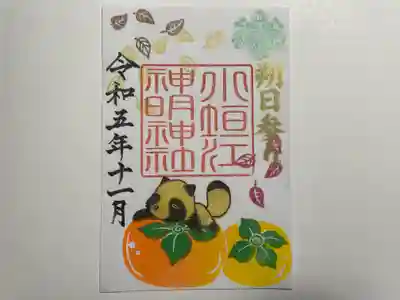 朔日参り
小垣江
神明神社
令和五年十一月